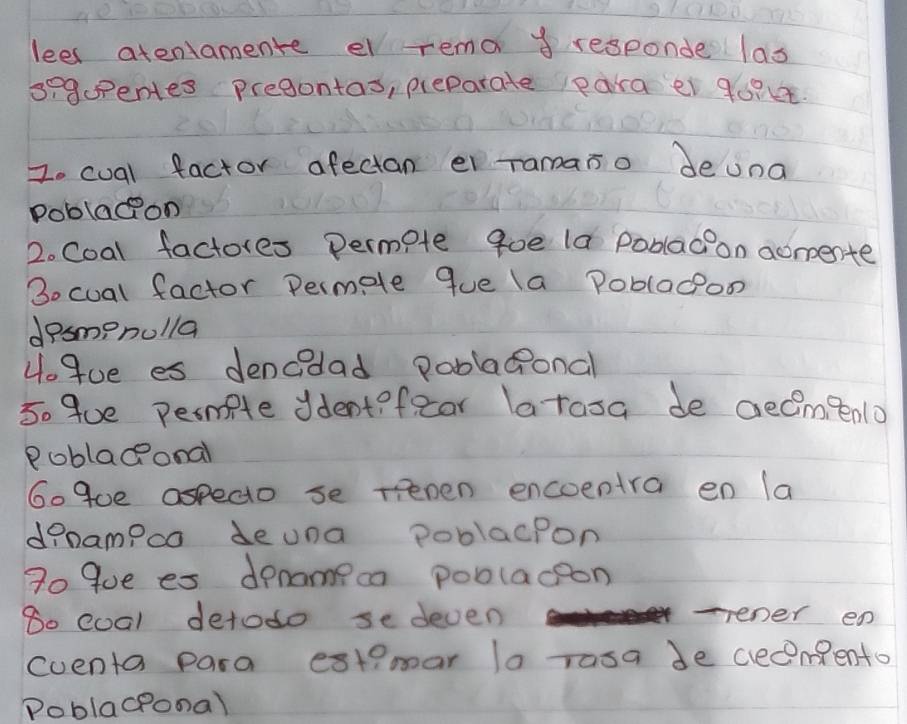 lees atentamente el tema y responde las
siguientes preguntas, preparate para el quiz.
1. cual factor afectan el tamaño de una
poblacion
2. Coal factores permite que la poblacion aomente
3. cual factor permite que la poblacion
desminulla
4. que es dencidad poblacional
5. que permite ydentificar la tasa de crecimiento
poblacional
6. que aspecto se tienen encoentra en la
dinamica de una poblacion
7. que es dinamica poblacion
8. coal detodo se deven tener en
cuenta para estimar la tasa de crecimiento
poblacional